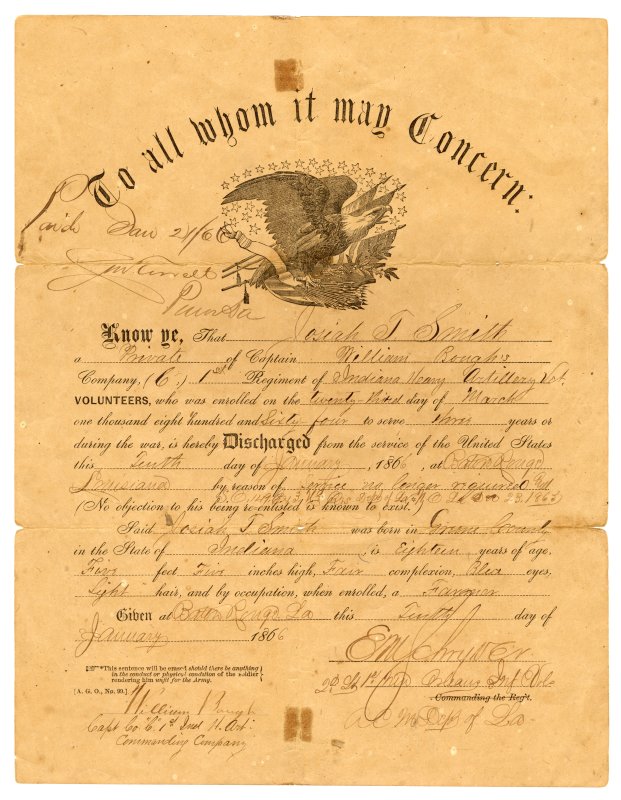 To all whom it may Concern:
Paid Jan 21/66
Know ye, That Josiah T Smith
a Private of Captain William Bough's
Company, (C.) 1st Regiment of Indiana Heavy Artillery Vol.
VOLUNTEERS, who was enrolled on the twenty third day of March
one thousand eight hundred and Sixty four to serve three years or
during the war, is hereby Discharged from the service of the United States
this Tenth day of January, 1866, at Baton Rouge
Louisiana by reason of service no longer required
(No objection to his being re-enlisted is known to exist.
Said Josiah T Smith was born in Greene County
in the State of Indiana, is Eighteen years of age,
Five feet Five inches high, Fair complexion, Blue eyes,
Light hair, and by occupation, when enrolled, a Farmer
Given at Baton Rouge La this Tenth day of
January 1866
*This sentence will be erased should there be anything
in the conduct or physical condition of the soldier
rendering him unfit for the Army.
[A. G. O., No. 99.]
William Bough
Capt Co "C" 1st Ind H. Art
Commanding Company
Commanding the Reg't.
A C M Dept of La